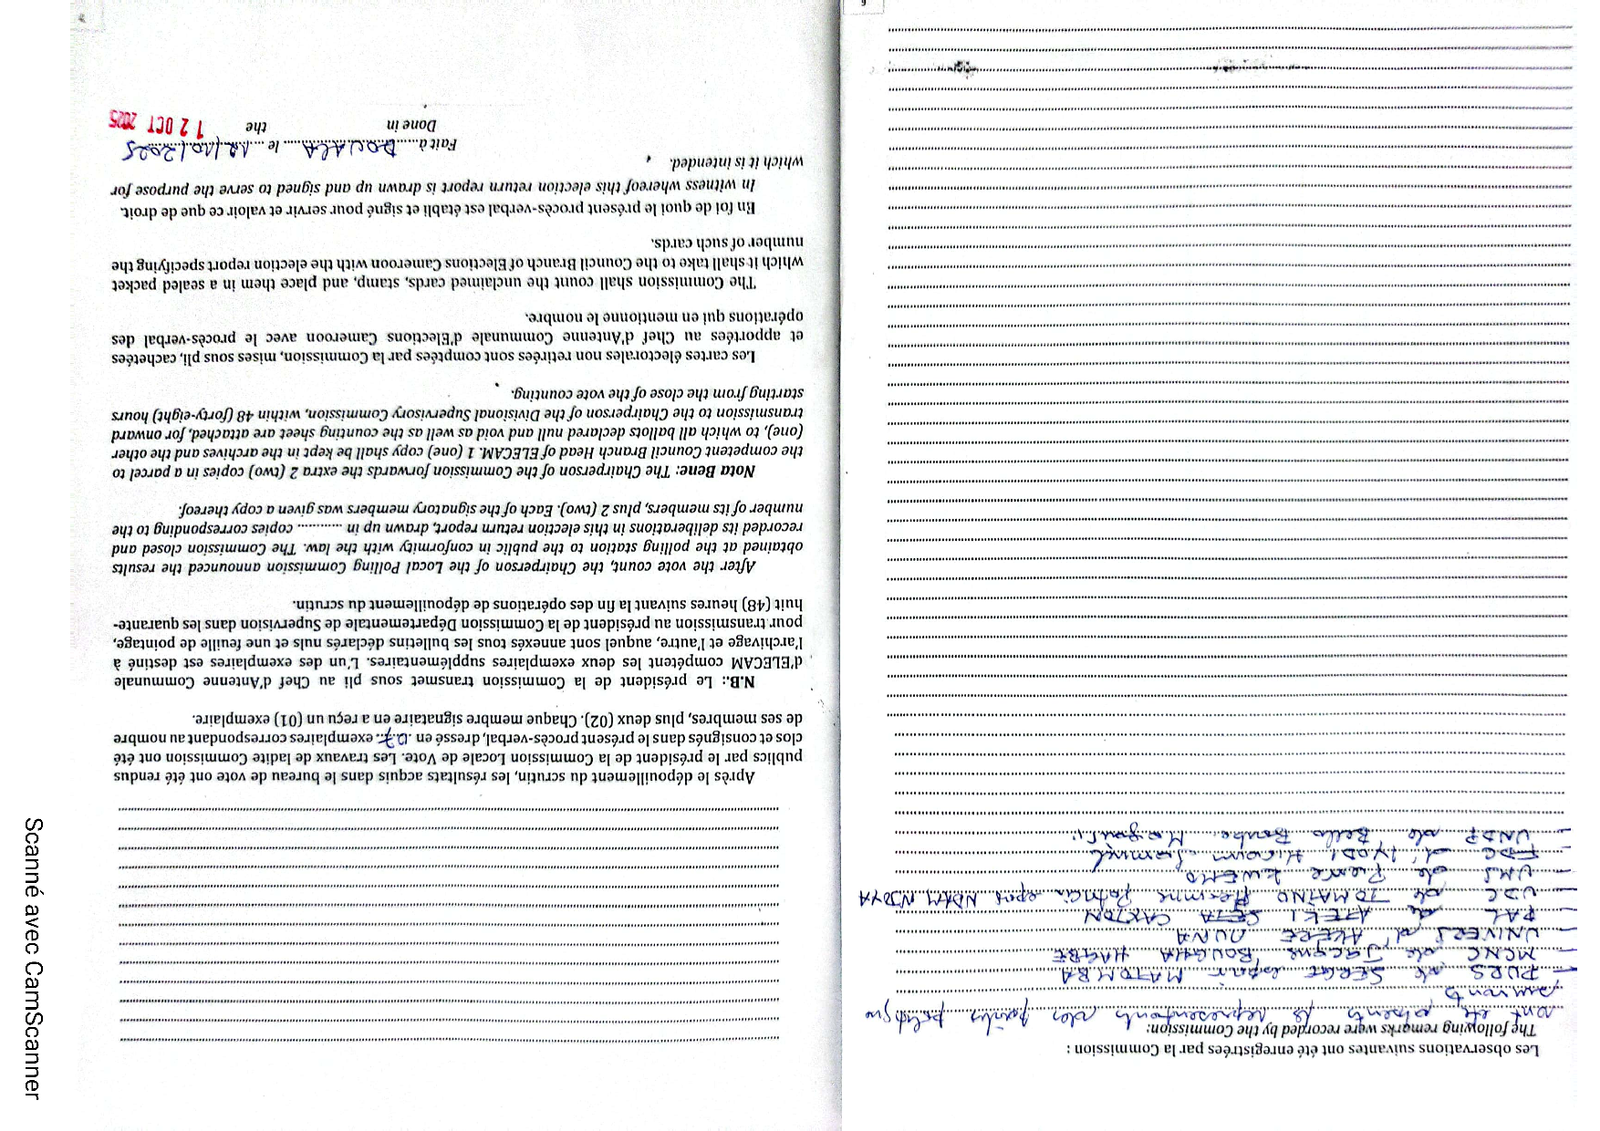 Les observations suivantes ont été enregistrées par la Commission :
The following remarks were recorded by the Commission:
ont été absents le representants des partis politique
suivants
— PURS de SERGE espoir MATOMBA
— MCNC de Jacque BOUGHA HAGBE
— UNIVERS d' AKERE MUNA
— PAL de ATEKI SETA CAXTON
— UDC de TOMAINO Hermine Patricia epse NDAM NJOYA
— UMS de Pierre KWEMO
— FDC d' IYODI Hiram Samuel
— UNDP de Bello Bouba Maigari
6
Après le dépouillement du scrutin, les résultats acquis dans le bureau de vote ont été rendus
publics par le président de la Commission Locale de Vote. Les travaux de ladite Commission ont été
clos et consignés dans le présent procès-verbal, dressé en 07 exemplaires correspondant au nombre
de ses membres, plus deux (02). Chaque membre signataire en a reçu un (01) exemplaire.
N.B.: Le président de la Commission transmet sous pli au Chef d'Antenne Communale
d'ELECAM compétent les deux exemplaires supplémentaires. L'un des exemplaires est destiné à
l'archivage et l'autre, auquel sont annexés tous les bulletins déclarés nuls et une feuille de pointage,
pour transmission au président de la Commission Départementale de Supervision dans les quarante-
huit (48) heures suivant la fin des opérations de dépouillement du scrutin.
After the vote count, the Chairperson of the Local Polling Commission announced the results
obtained at the polling station to the public in conformity with the law. The Commission closed and
recorded its deliberations in this election return report, drawn up in ............ copies corresponding to the
number of its members, plus 2 (two). Each of the signatory members was given a copy thereof.
Nota Bene: The Chairperson of the Commission forwards the extra 2 (two) copies in a parcel to
the competent Council Branch Head of ELECAM. 1 (one) copy shall be kept in the archives and the other
(one), to which all ballots declared null and void as well as the counting sheet are attached, for onward
transmission to the Chairperson of the Divisional Supervisory Commission, within 48 (forty-eight) hours
starting from the close of the vote counting.
Les cartes électorales non retirées sont comptées par la Commission, mises sous pli, cachetées
et apportées au Chef d'Antenne Communale d'Elections Cameroon avec le procès-verbal des
opérations qui en mentionne le nombre.
The Commission shall count the unclaimed cards, stamp, and place them in a sealed packet
which it shall take to the Council Branch of Elections Cameroon with the election report specifying the
number of such cards.
En foi de quoi le présent procès-verbal est établi et signé pour servir et valoir ce que de droit.
In witness whereof this election return report is drawn up and signed to serve the purpose for
which it is intended.
Fait à DOUALA le 12/10/2025
Done in the 12 OCT 2025
Scanné avec CamScanner